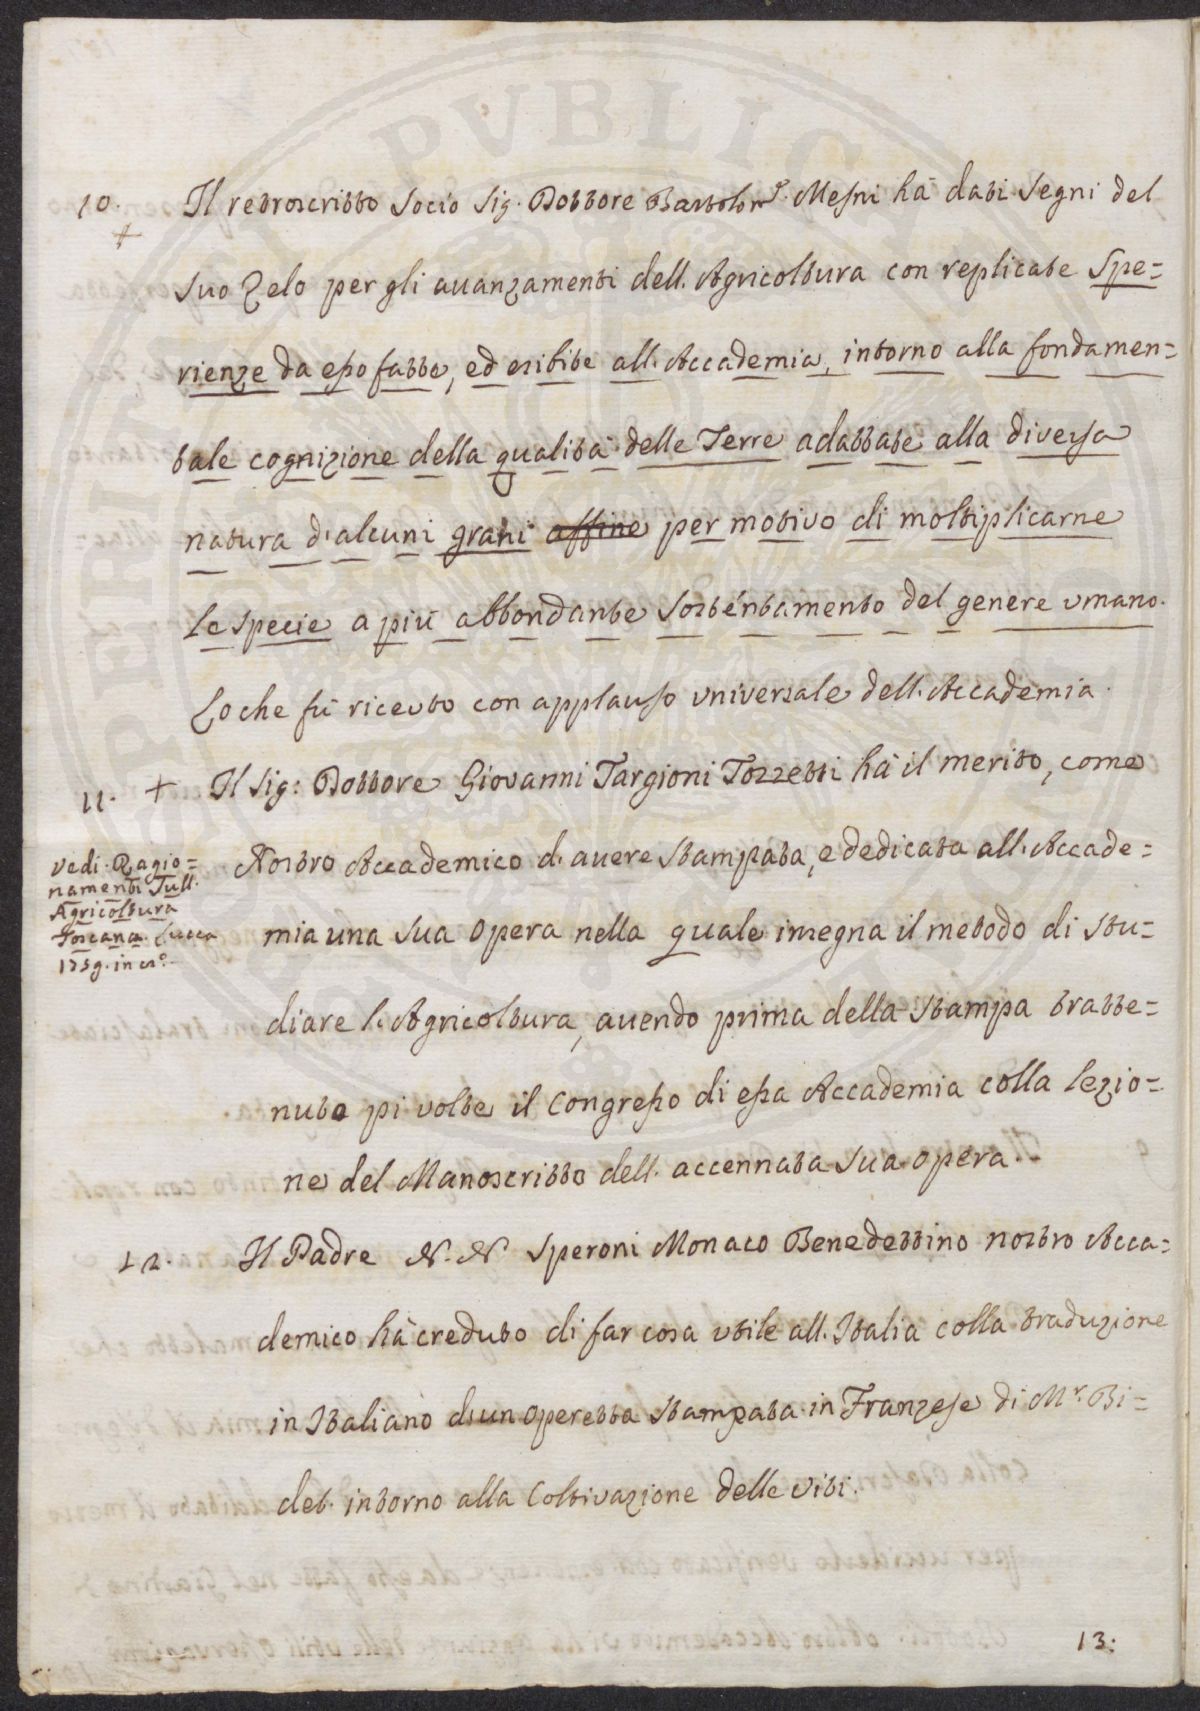 10. Il retroscritto Socio Sig. Dottore Bartolom.º Mesni hà dati segni del
+
suo Zelo per gli auanzamenti dell'Agricoltura con replicate Spe=
rienze da esso fatte, ed esibite all'Accademia, intorno alla fondamen=
tale cognizione della qualità delle Terre adattate alla diversa
natura d'alcuni grani affine per motivo di moltiplicarne
le specie a più abbondante sostentamento del genere umano.
Lo che fù riceuto con applauso universale dell'Accademia.
11. + Il Sig: Dottore Giovanni Targioni Tozzetti hà il merito, come
Nostro Accademico d'auere stampata, e dedicata all'Accade=
mia una sua Opera nella quale insegna il metodo di stu=
diare l'Agricoltura, auendo prima della stampa tratte=
nuto pi volte il Congresso di essa Accademia colla lezio=
ne del Manoscritto dell'accennata sua opera.
vedi Ragio=
namenti Sull'
Agricoltura
Toscana. Lucca
1759. in
12. Il Padre N. N. Speroni Monaco Benedettino nostro Acca=
demico hà creduto di far cosa utile all'Italia colla traduzione
in Italiano d'un Operetta stampata in Franzese di Mr. Bi=
det intorno alla Coltivazione delle Viti.
13:
PVBLICA